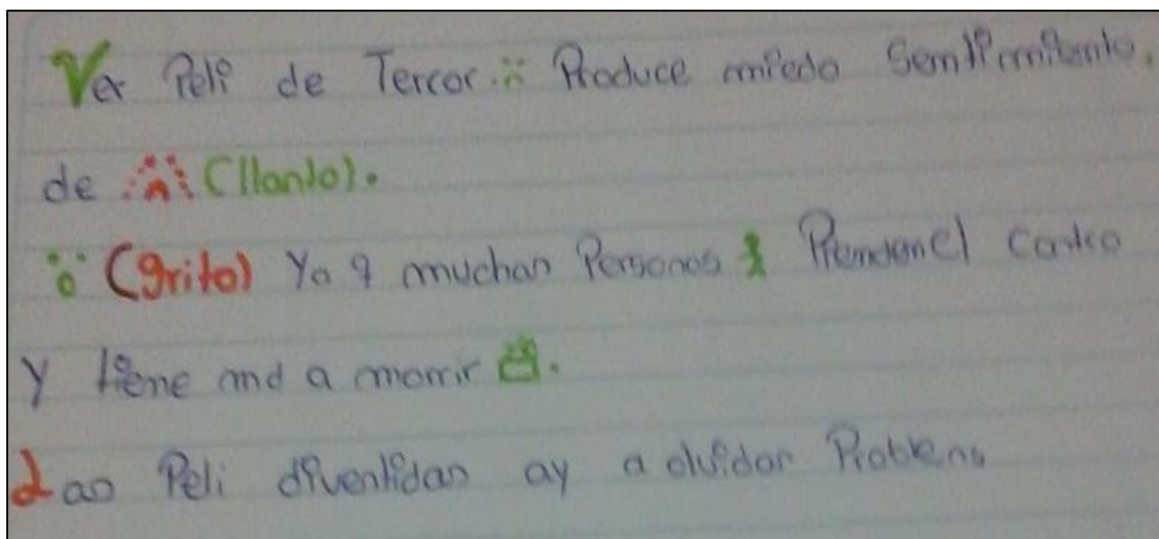 Ver Peli de Terror Produce miedo Sentimiento,
de (llanto).
(grito) Ya q muchan Personas Pierden el Contro
y tiene md a morrir
Las Peli divertidas ay a olvidar Problems